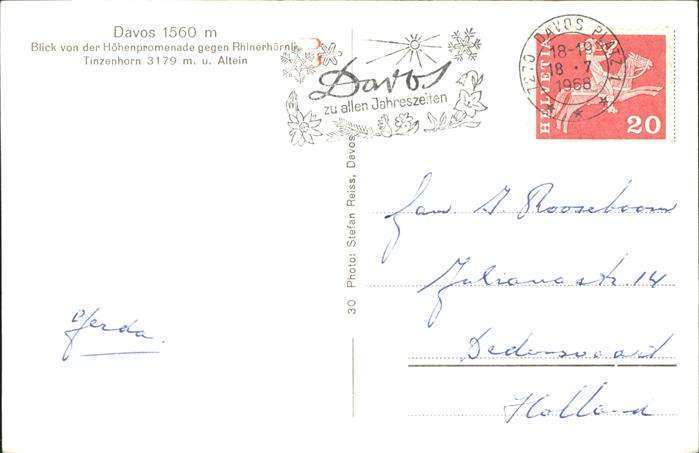 Davos 1560 m
Blick von der Höhenpromenade gegen Rhinerhörnli
Tinzenhorn 3179 m. u. Altein
Davos
zu allen Jahreszeiten
7270 DAVOS PLATZ 1
18-19
18.7
1968
HELVETIA
20
30 Photo: Stefan Reiss, Davos
Fam. J. Rooseboom
Julianastr. 14
Dedemsvaart
Holland
Gerda.